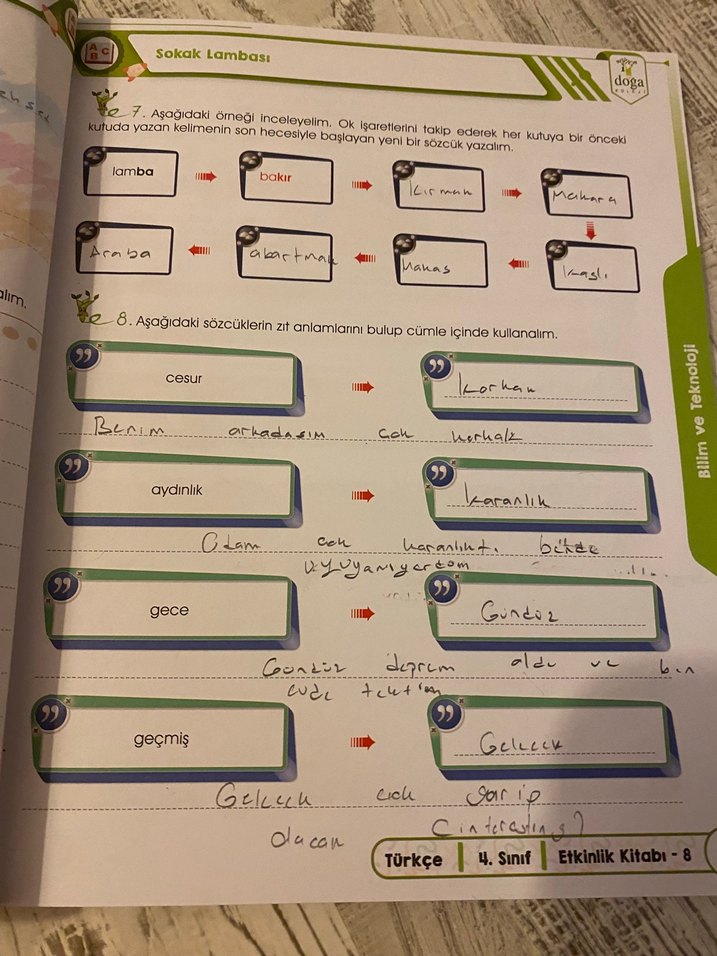 A B C
Sokak Lambası
doğa
KOLEJİ
7. Aşağıdaki örneği inceleyelim. Ok işaretlerini takip ederek her kutuya bir önceki
kutuda yazan kelimenin son hecesiyle başlayan yeni bir sözcük yazalım.
lamba
bakır
Kırmak
Makara
Araba
abartmak
Makas
Kaslı
alım.
8. Aşağıdaki sözcüklerin zıt anlamlarını bulup cümle içinde kullanalım.
cesur
Korkak
Benim arkadaşım cok korkak
aydınlık
Karanlık
Odam cok karanlıktı
uyuyamıyordom
gece
Gündüz
Gündüz deprem oldu ve ben
evde tektim
geçmiş
Gelecek
Gelecek cok garip
olacak
Bilim ve Teknoloji
Türkçe | 4. Sınıf | Etkinlik Kitabı - 8